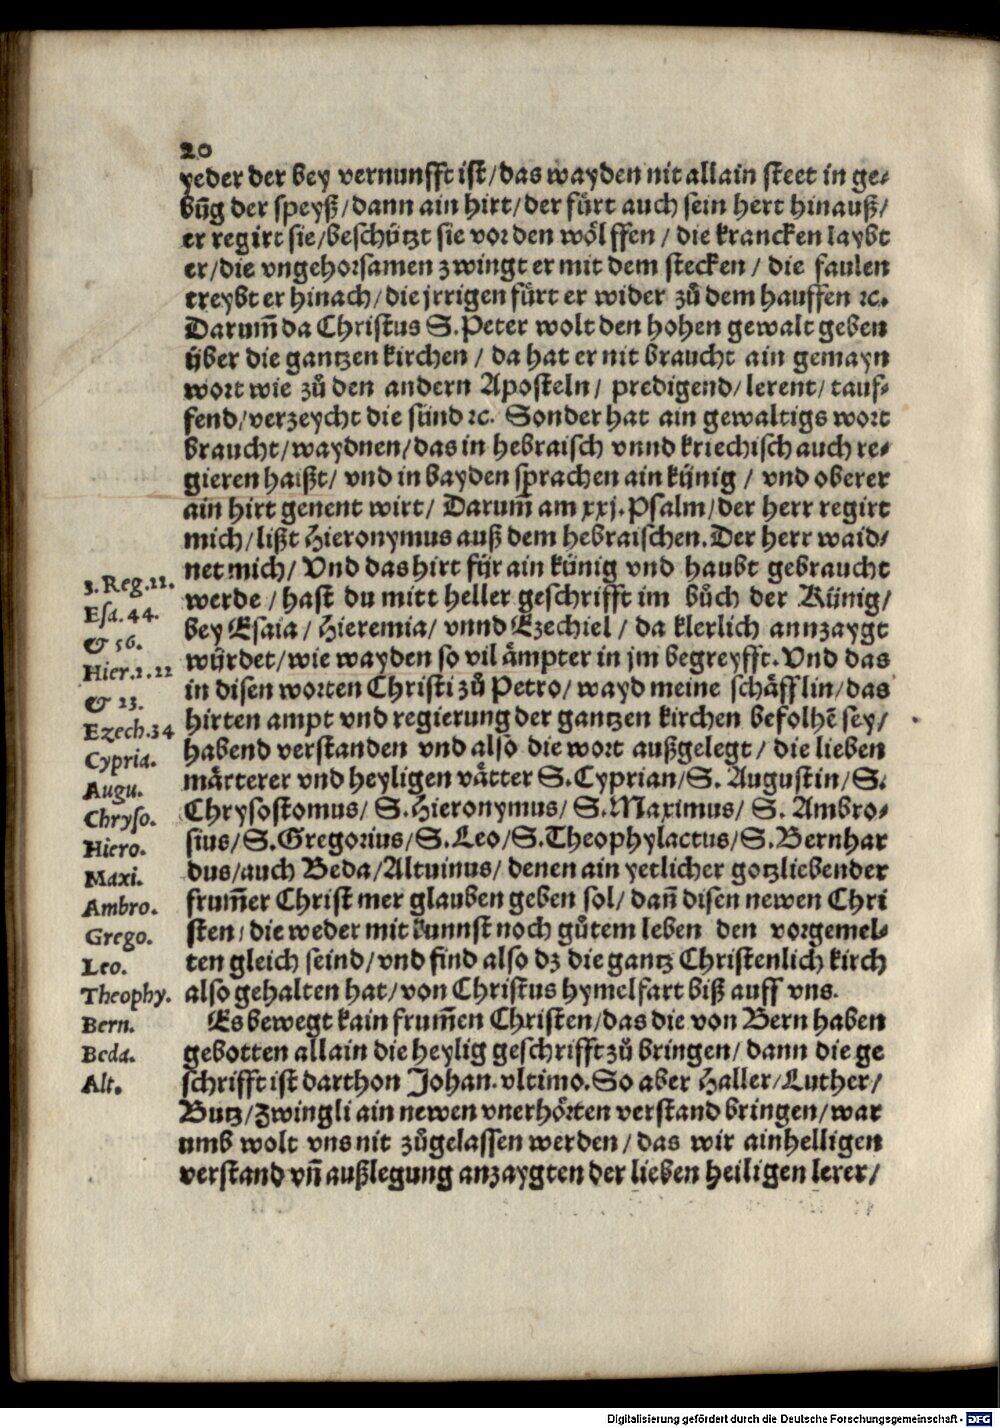 20
yeder der bey vernunfft ist/das wayden nit allain steet in ge⸗
bu᷑g der speyß/dann ain hirt/der fürt auch sein hert hinauß/
er regirt sie/beschützt sie vor den wölffen/die krancken laybt
er/die vngehorsamen zwingt er mit dem stecken/die faulen
treybt er hinach/die jrrigen fürt er wider zů dem hauffen ꝛc.
Darum̃ da Christus S.Peter wolt den hohen gewalt geben
über die gantzen kirchen/da hat er nit braucht ain gemayn
wort wie zů den andern Aposteln/predigend/lerent/tauf⸗
fend/verzeycht die sünd ꝛc. Sonder hat ain gewaltigs wort
braucht/waydnen/das in hebraisch vnnd kriechisch auch re⸗
gieren haißt/vnd in bayden sprachen ain künig/vnd oberer
ain hirt genent wirt/Darum̃ am xxj.Psalm/der herr regirt
mich/lißt Hieronymus auß dem hebraischen.Der herr waid/
net mich/Vnd das hirt für ain künig vnd haubt gebraucht
werde/hast du mitt heller geschrifft im bůch der Künig/
bey Esaia/Hieremia/vnnd Ezechiel/da klerlich annzaygt
würdet/wie wayden so vil ämpter in jm begreyfft.Vnd das
in disen worten Christi zů Petro/wayd meine schäfflin/das
hirten ampt vnd regierung der gantzen kirchen befolhẽ sey/
habend verstanden vnd also die wort außgelegt/die lieben
märterer vnd heyligen vätter S.Cyprian/S.Augustin/S.
Chrysostomus/S.Hieronymus/S.Maximus/S.Ambro⸗
sius/S.Gregorius/S.Leo/S.Theophylactus/S.Bernhar
dus/auch Beda/Altuinus/denen ain yetlicher gotzliebender
frum̃er Christ mer glauben geben sol/dañ disen newen Chri
sten/die weder mit kunnst noch gůtem leben den vorgemel⸗
ten gleich seind/vnd find also dz die gantz Christenlich kirch
also gehalten hat/von Christus hymelfart biß auff vns.
Es bewegt kain frum̃en Christen/das die von Bern haben
gebotten allain die heylig geschrifft zů bringen/dann die ge
schrifft ist darthon Johan.vltimo.So aber Haller/Luther/
Butz/Zwingli ain newen vnerhörten verstand bringen/war
umb wolt vns nit zůgelassen werden/das wir ainhelligen
verstand vñ außlegung anzaygten der lieben heiligen lerer/
3.Reg.22.
Esa.44.
& 56.
Hier.2.22
& 23.
Ezech.34
Cypria.
Augu.
Chryso.
Hiero.
Maxi.
Ambro.
Grego.
Leo.
Theophy.
Bern.
Beda.
Alt.
Digitalisierung gefördert durch die Deutsche Forschungsgemeinschaft - DFG